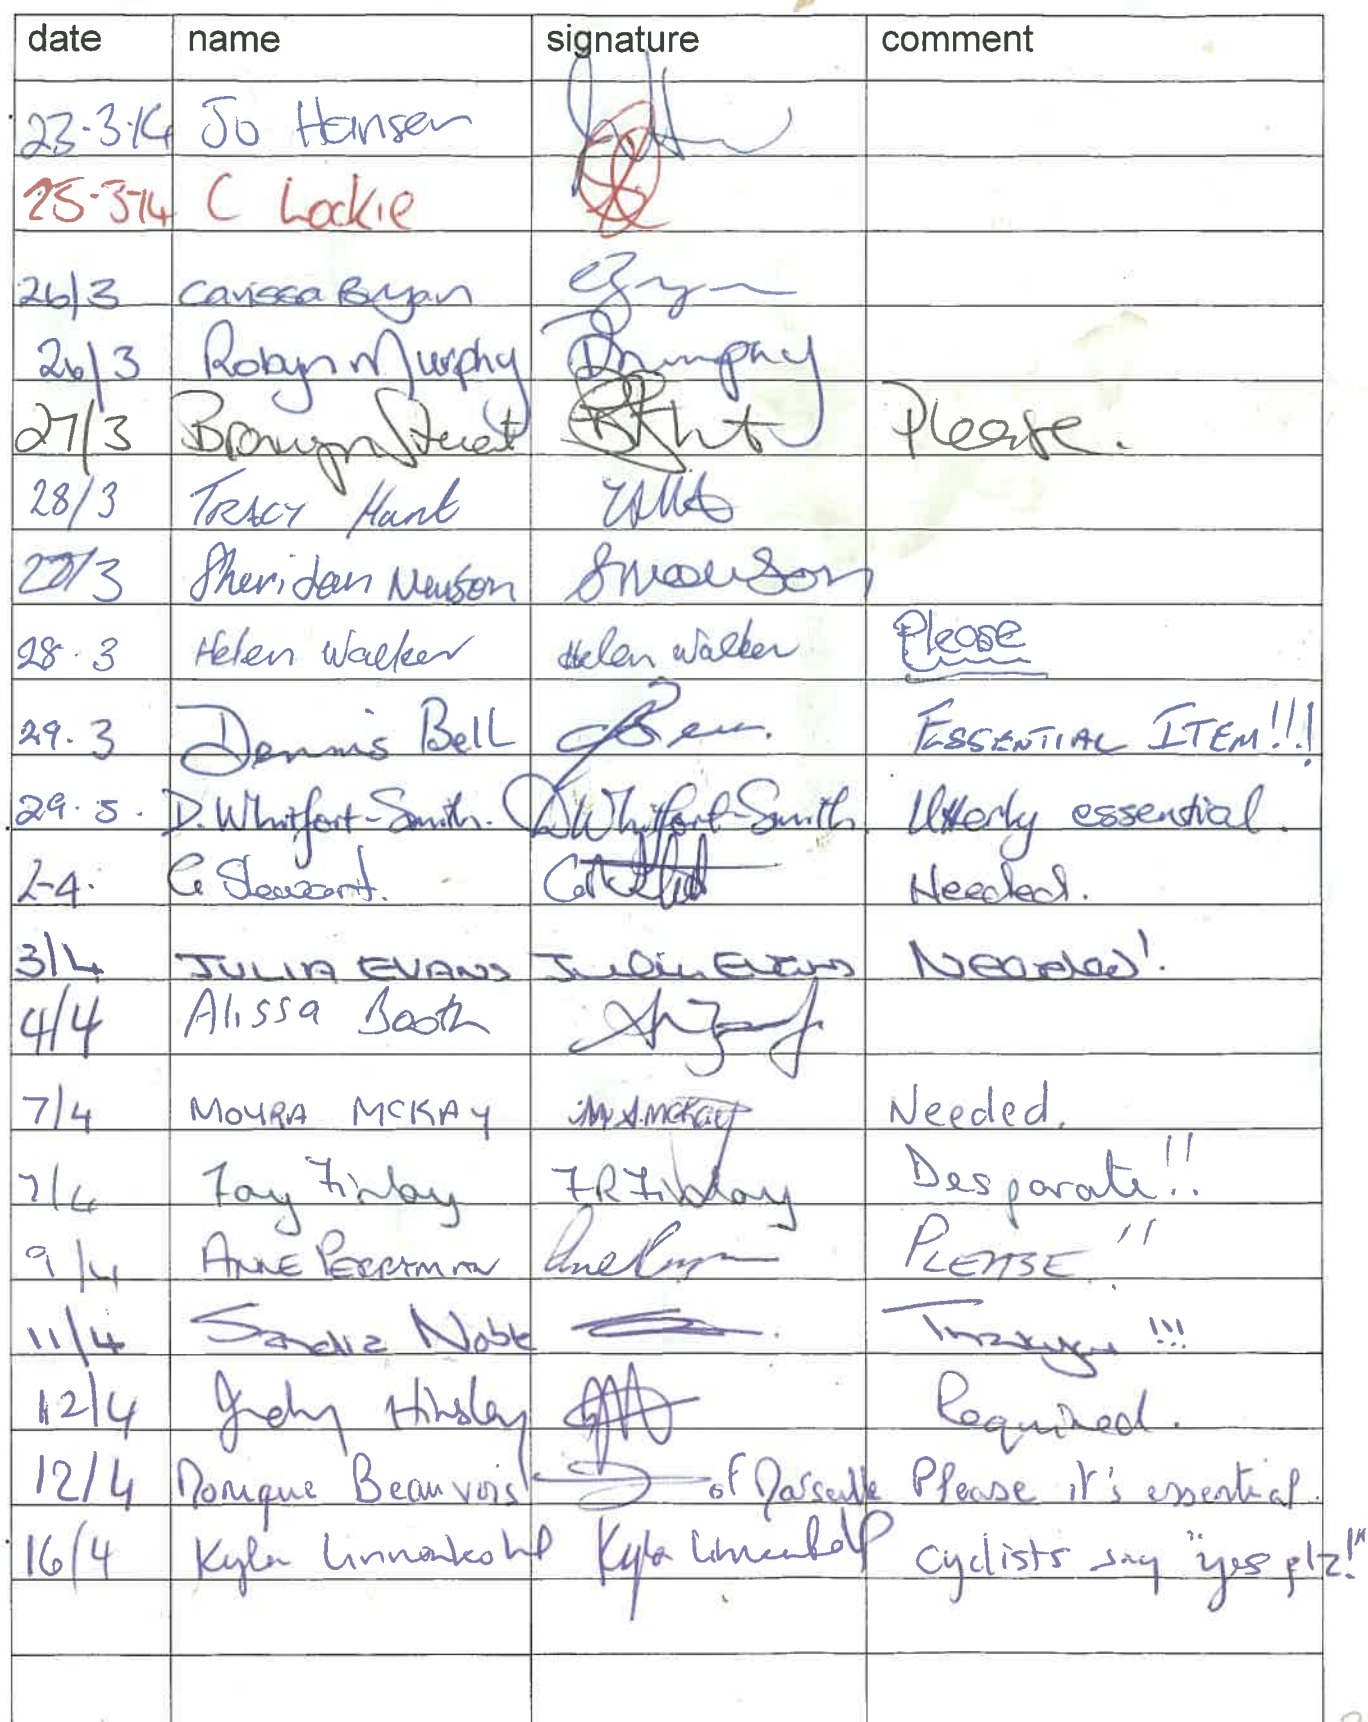 date name signature comment
23-3-14 Jo Hansen
25-3-14 C Lockie
26/3 Carissa Bryan
26/3 Robyn Murphy
27/3 Bronwyn Please.
28/3 TRACY Hunt
27/3 Sheridan Newson
28.3 Helen Walker Helen Walker Please
29.3 Dennis Bell ESSENTIAL ITEM!!!
29.3. D. Whitfort-Smith. D. Whitfort-Smith. Utterly essential.
2-4. Needed.
3/4 JULIA EVANS Julia Evans Needed!
4/4 Alissa Booth
7/4 MOYRA MCKAY M A. MCKay Needed.
7/4 Fay Finlay F R Finlay Desparate!!
9/4 ANNE PERRYMAN PLEASE!!
11/4 Sandra Noble !!!
12/4 Judy Hinsley Required.
12/4 Monique Beauvois of Marseille Please it's essential.
16/4 Kyla Kyla cyclists say "yes plz!"